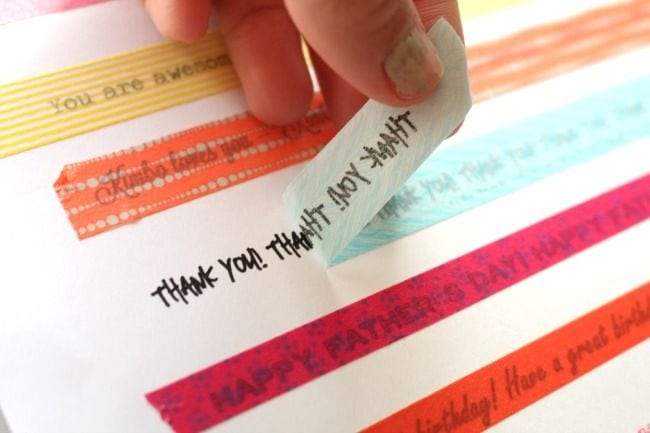 You are awesom
Kimbo loves you
THANK YOU! THAN
THANK YOU! TH
THANK YOU! THANK YOU! THANK YOU
HAPPY FATHER'S DAY! HAPPY FAT
birthday! Have a great birthd